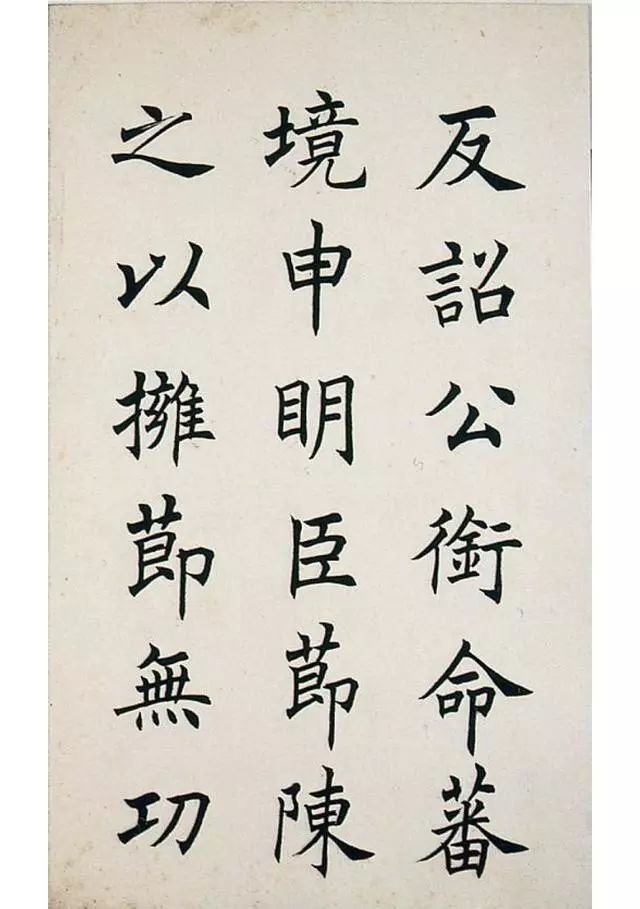 反詔公銜命蕃
境申明臣節陳
之以擁節無功